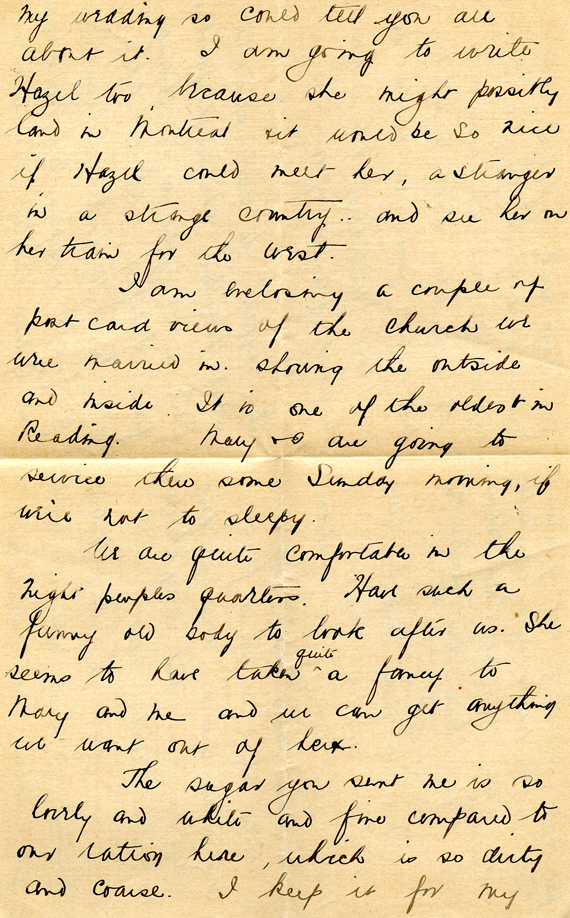 my wedding so could tell you all
about it. I am going to write
Hazel too, because she might possibly
land in Montreal & it would be so nice
if Hazel could meet her, a stranger
in a strange country.. and see her on
her train for the west.
I am enclosing a couple of
post card views of the church we
were married in. showing the outside
and inside. It is one of the oldest in
Reading. Mary & I are going to
service there some Sunday morning, if
we're not to sleepy.
We are quite comfortable in the
night peoples quarters. Have such a
funny old body to look after us. She
seems to have taken quite a fancy to
Mary and me and we can get anything
we want out of her.
The sugar you sent me is so
lovely and white and fine compared to
our ration here, which is so dirty
and coarse. I keep it for my